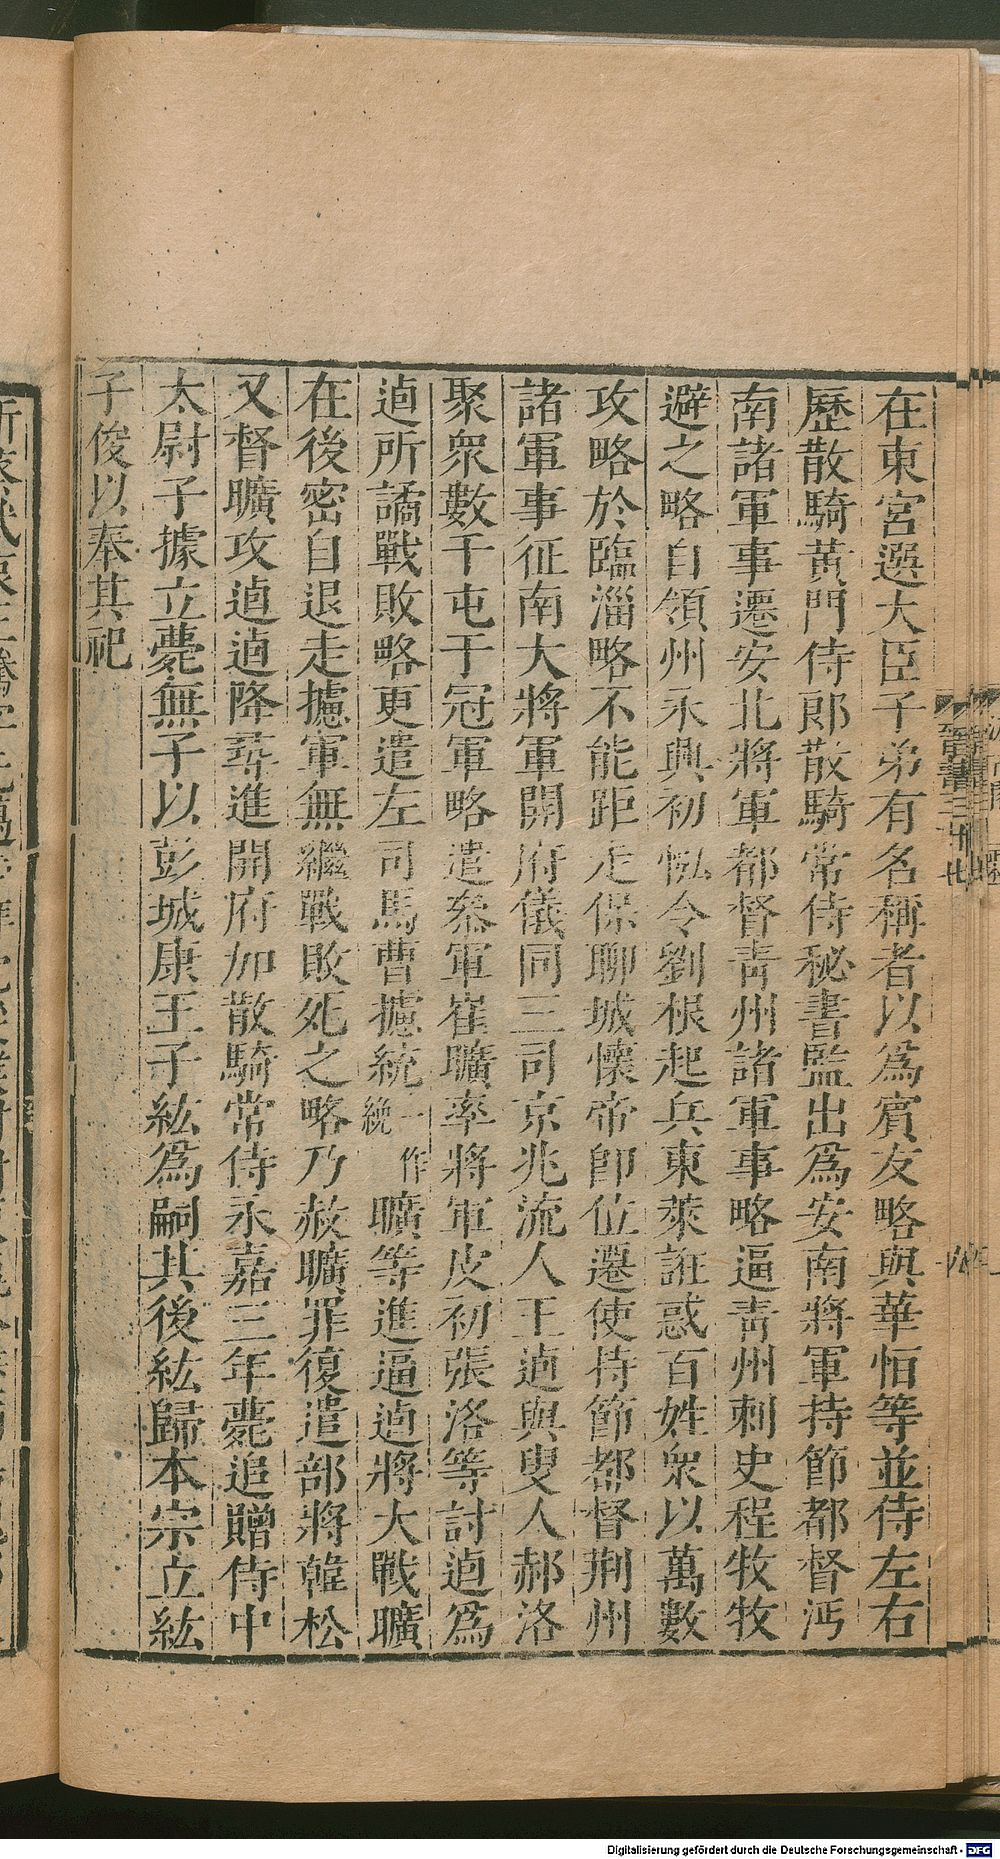 在東宮選大臣子弟有名稱者以爲賓友略與華恒等並侍左右
歷散騎黃門侍郎散騎常侍秘書監出爲安南將軍持節都督沔
南諸軍事遷安北將軍都督靑州諸軍事略逼靑州刺史程牧牧
避之略自領州永興初𢙢令劉根起兵東萊誑惑百姓衆以萬數
攻略於臨淄略不能距走保聊城懷帝卽位遷使持節都督荆州
諸軍事征南大將軍開府儀同三司京兆流人王逌與叟人郝洛
聚衆數千屯于冠軍略遣叅軍崔曠率將軍皮初張洛等討逌爲
逌所譎戰敗略更遣左司馬曹攄統一作統曠等進逼逌將大戰曠
在後密自退走攄軍無繼戰敗死之略乃赦曠罪復遣部將韓松
又督曠攻逌逌降尋進開府加散騎常侍永嘉三年薨追贈侍中
太尉子據立薨無子以彭城康王子紘爲嗣其後紘歸本宗立紘
子俊以奉其祀
晉書三十七
Digitalisierung gefördert durch die Deutsche Forschungsgemeinschaft - DFG